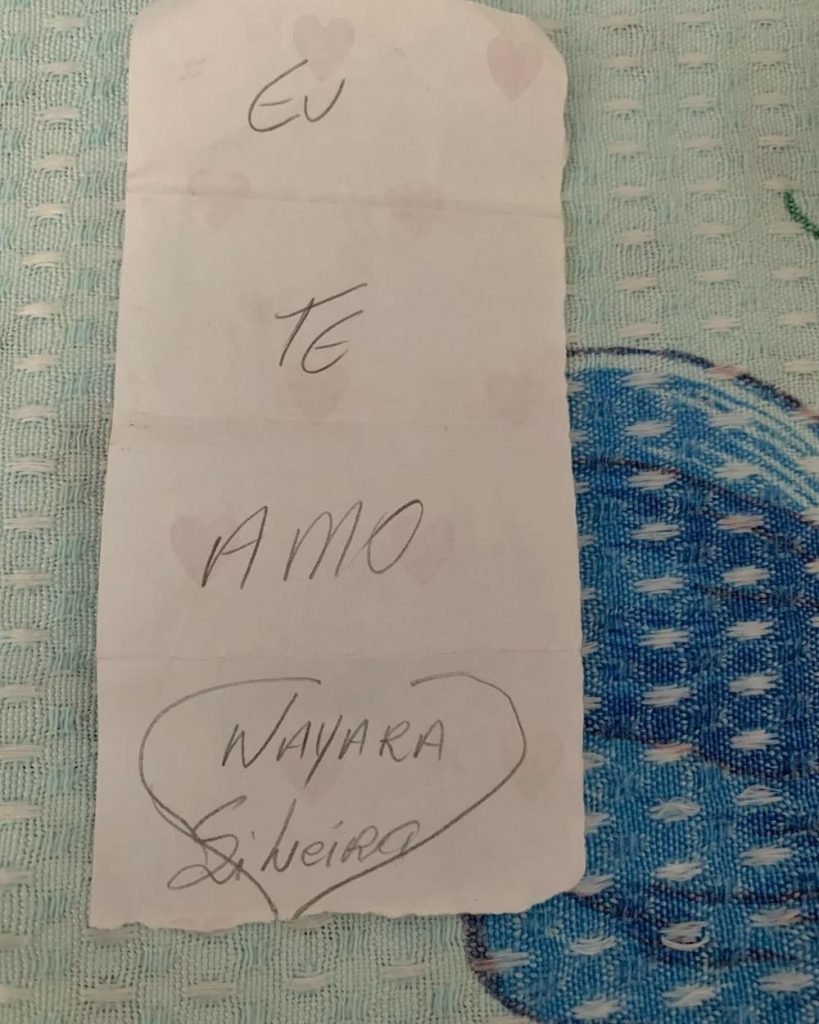 EU
TE
AMO
NAYARA
Silveira